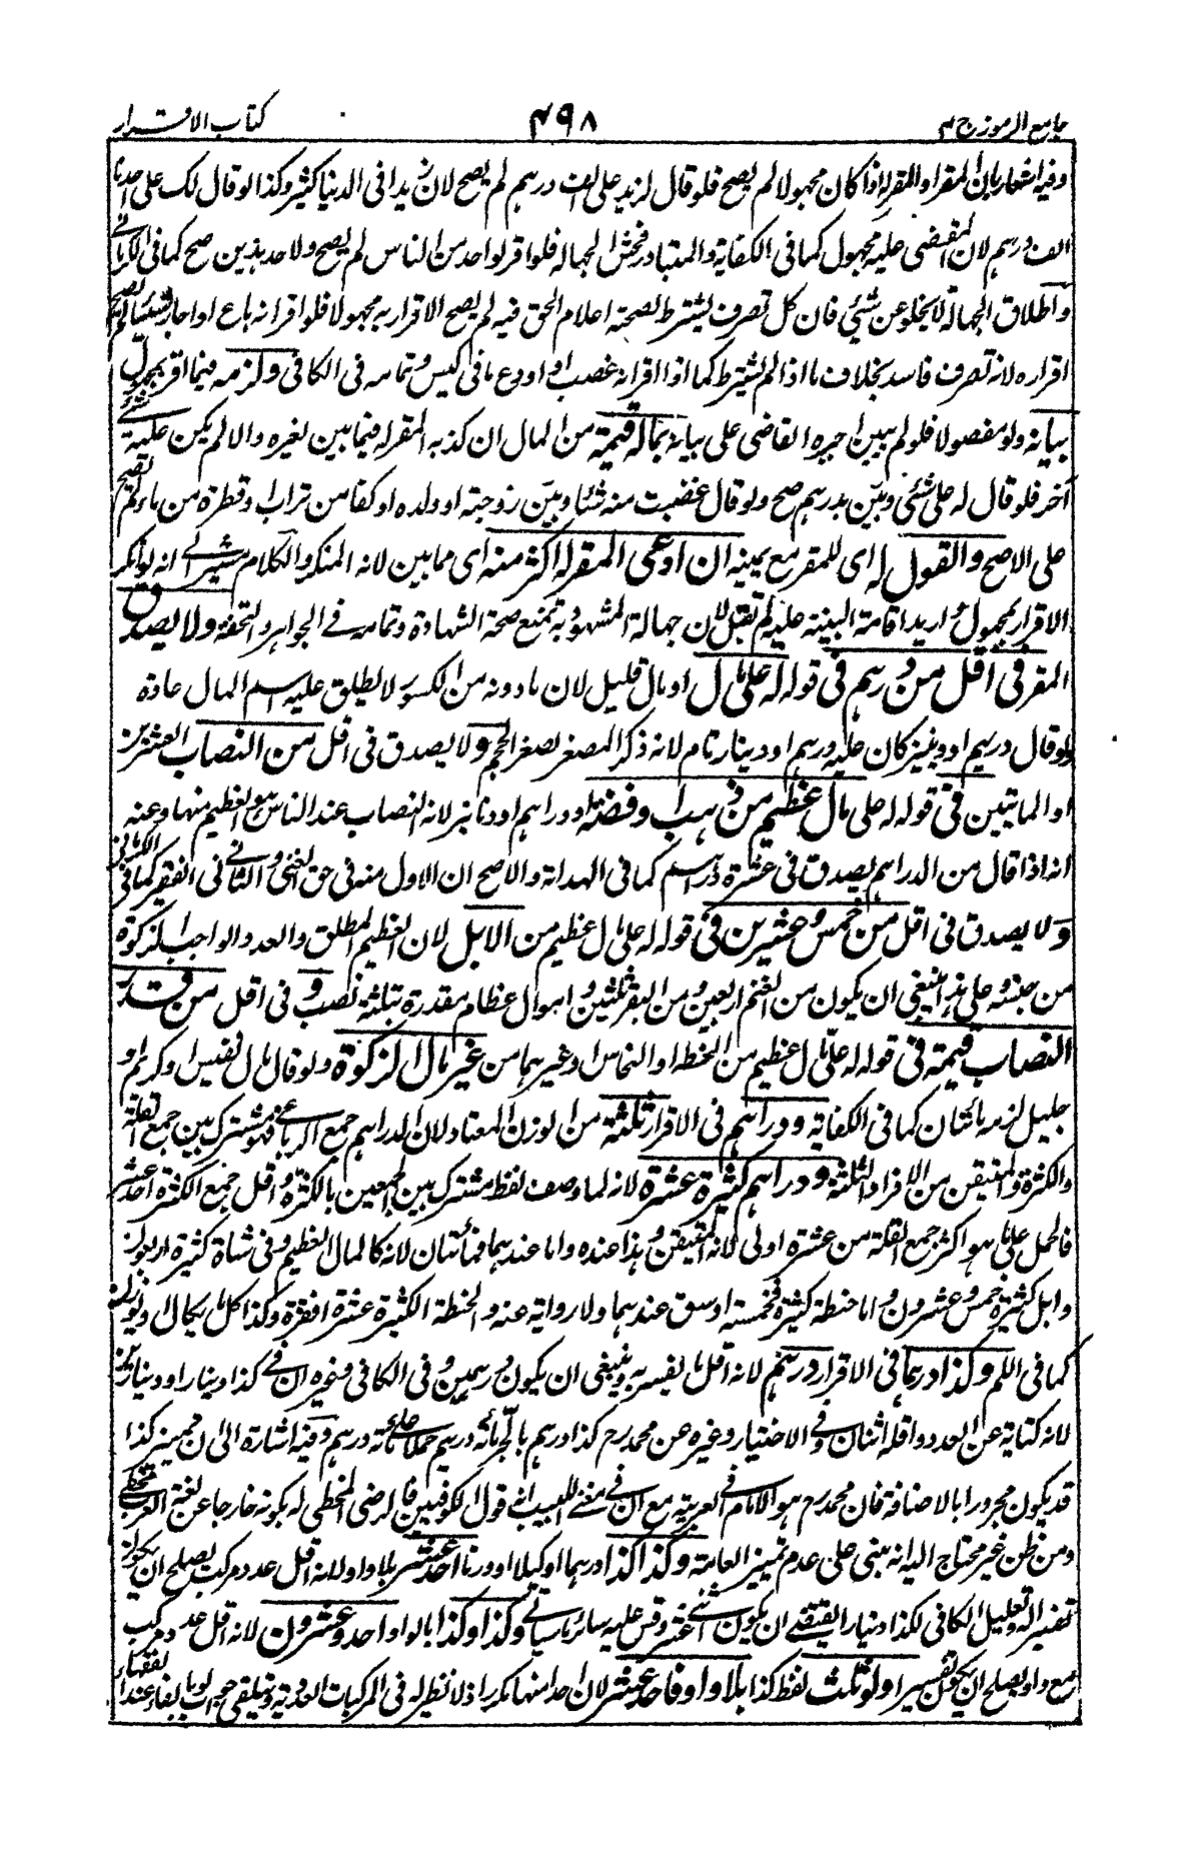 جامع الرموز ج ٢ ٤٩٨ كتاب الاقرار
وفيه اشعار بان المقر او المقر له اذا كان مجهولا لم يصح فلو قال لزيد على الف درهم لم يصح لان زيدا فى الدنيا كثير وكذا لو قال لك على احدنا
الف درهم لان المقضى عليه مجهول كما فى الكفاية والمتبادر فحش الجهالة فلو اقر لواحد من الناس لم يصح ولاحد هذين صح كما فى الكرمانى
واطلاق الجهالة لا يخلو عن شئ فان كل تصرف يشترط لصحته اعلام الحق فيه لم يصح الاقرار به مجهولا فلو اقر انه باع او اجار شيئا لم يصح
اقراره لانه تصرف فاسد بخلاف ما اذا لم يشترط كما اذا اقر انه غصب او اودع ما فى كيس وتمامه فى الكافى ولزمه فيما اقر بمجهول
بيانه ولو مفصولا فلو لم يبين اجبره القاضى على بيانه بماله قيمة من المال ان كذبه المقر له فيما بين لغيره والا لم يكن عليه شئ
آخر فلو قال له على شئ وبين بدرهم صح ولو قال غصبت منه شئا وبين زوجته او ولده او كفا من تراب او قطرة من ماء لم يصح
على الاصح والقول له اى للمقر مع يمينه ان ادعى المقر له اكثر منه اى مما بين لانه المنكر والكلام مشير الى انه لو انكر
الاقرار بمجهول و اريد اقامة البينة عليه لم تقبل لان جهالة المشهود به تمنع صحة الشهادة وتمامه فى الجواهر والتحفة ولا يصدق
المقر فى اقل من درهم فى قوله له على مال او مال قليل لان ما دونه من الكسور لا يطلق عليه اسم المال عادة
ولو قال دريهم او دنينير كان عليه درهم او دينار تام لانه ذكر المصغر لصغر الحجم ولا يصدق فى اقل من النصاب العشرين
او المايتين فى قوله له على مال عظيم من ذهب او فضة او دراهم او دنانير لانه النصاب عند الناس هو العظيم منها وعنه
انه اذا قال من الدراهم يصدق فى عشرة دراهم كما فى الهداية والاصح ان الاول منه فى حق الغنى والثانى فى الفقير كما فى الكرمانى
ولا يصدق فى اقل من خمس وعشرين فى قوله له على مال عظيم من الابل لان العظيم المطلق والعدد الواجب الزكوة
من جنسه وعلى هذا ينبغى ان يكون من الغنم اربعين ومن البقر ثلثين واموال عظام مقدرة بثلثة نصب و فى اقل من قدر
النصاب قيمة فى قوله له على مال عظيم من الحنطة او النحاس او غيرهما من غير مال الزكوة ولو قال مال نفيس او كريم او
جليل لزمه مائتان كما فى الكفاية ودراهم فى الاقرار ثلثة من الوزن المعتاد لان الدراهم جمع الرباعى فهو مشترك بين جمع القلة
والكثرة والمتيقن من الافراد الثلثة ودراهم كثيرة عشرة لانه لما وصف لفظ مشترك بين الجمعين بالكثرة و اقل جمع الكثرة احد عشر
فالحمل على ما هو اكثر جمع القلة من عشرة اولى لانه المتيقن وهذا عنده واما عندهما فمائتان لانه كالمال العظيم وفى شاة كثيرة اربعون
وابل كثيرة خمس وعشرون واما حنطة كثيرة فخمسة اوسق عندهما ولا رواية عنه والحنطة الكثيرة عشرة اقفزة وكذا كل ما يكال او يوزن
كما فى اللم وكذا درهما فى الاقرار درهم لانه اقل ما يفسر به وينبغى ان يكون درهمين وفى الكافى وغيره ان فى كذا دينارا او دينارين
لانه كناية عن العدد واقله اثنان وفى الاختيار وغيره عن محمد رح كذا درهم بالجر مائة درهم حملا على مائة درهم وفيه اشارة الى ان مميز كذا
قد يكون مجرورا بالاضافة فان محمد رح هو الامام فى العربية مع ان فى مغنى اللبيب انه قول الكوفيين فلا رضى المخطى له بكونه خارجا عن لغة العرب مخطى
ومن ظن غير محتاج اليه انه بنى على عدم تمييز العامة وكذا كذا درهما او كيلا او وزنا احد عشر بلا واو لانه اقل عدد مركب يصلح ان يكون
تفسيرا له وتعليل الكافى لكذا دينارا يقتضى ان يكون اثنى عشر وقس عليه سائر ما سياتى وكذا وكذا بالواو احد وعشرون لانه اقل عدد مركب
مع واو يصلح ان يكون تفسيرا ولو ثلث لفظ كذا بلا واو فاحد عشر لان احدا منها مكرر اذ لا نظير له فى المركبات العددية وتبقى